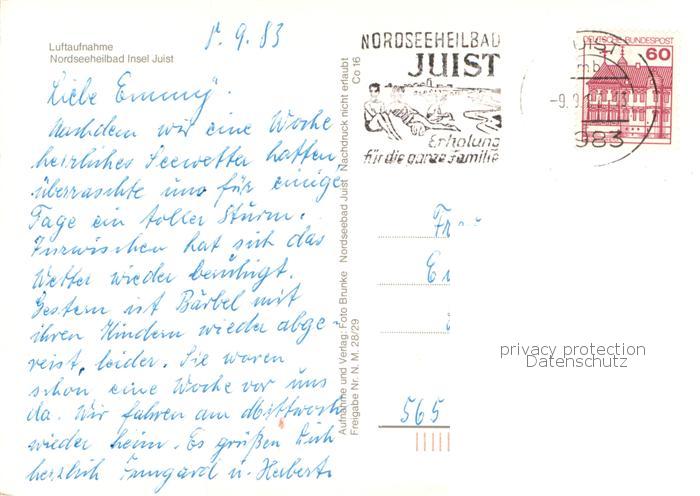 Luftaufnahme
Nordseeheilbad Insel Juist
8.9.83
Liebe Emmy.
Nachdem wir eine Woche
herrliches Seewetter hatten,
überraschte uns für einige
Tage ein toller Sturm.
Inzwischen hat sich das
Wetter wieder beruhigt.
Gestern ist Bärbel mit
ihren Kindern wieder abge-
reist, leider. Sie waren
schon eine Woche vor uns
da. Wir fahren am Mittwoch
wieder heim. Es grüßen Dich
herzlich Irmgard u. Herbert.
Aufnahme und Verlag: Foto Brunke Nordseebad Juist Nachdruck nicht erlaubt
Freigabe Nr. N. M. 28/29 Co 16
NORDSEEHEILBAD
JUIST
Erholung
für die ganze Familie
DEUTSCHE BUNDESPOST
60
JUIST
-9.9.
983
565
privacy protection
Datenschutz